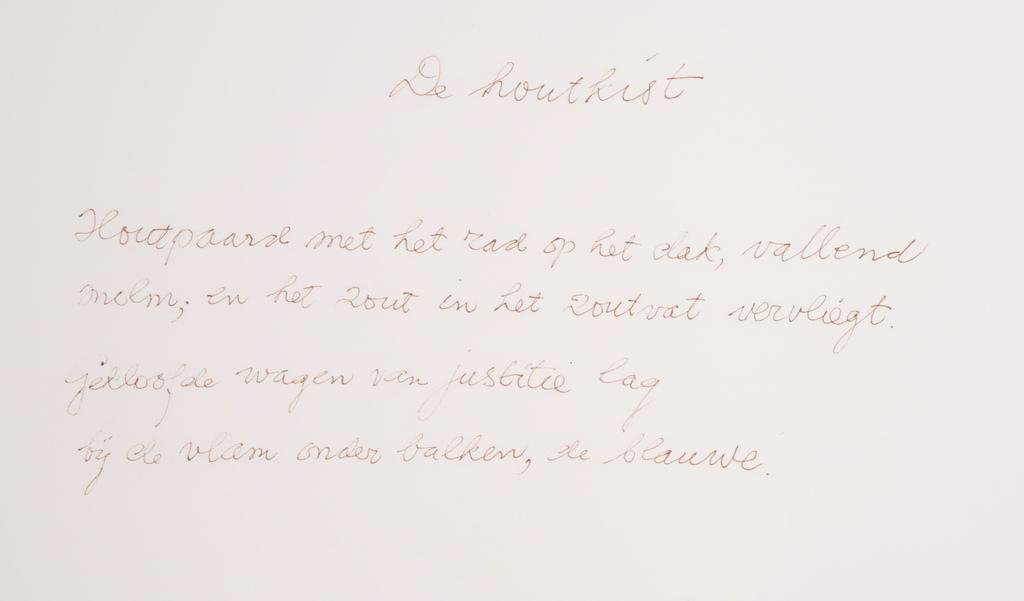 De houtkist
Houtpaard met het rad op het dak, vallend
molm; en het zout in het zoutvat vervliegt.
gekloofde wagen van justitie lag
bij de vlam onder balken, de blauwe.